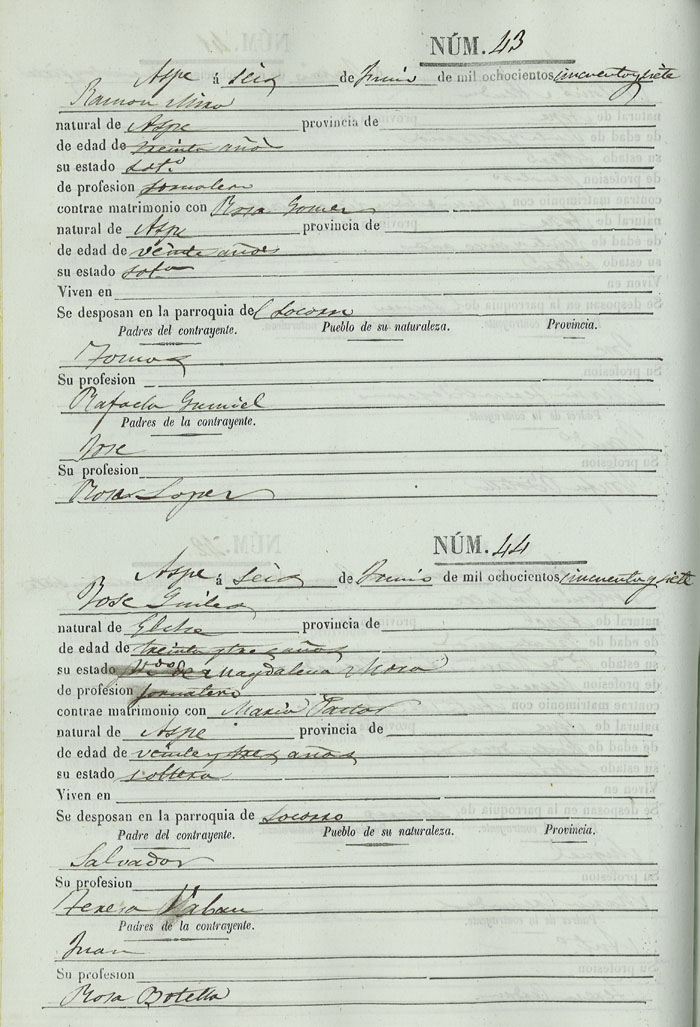 NÚM. 43
Aspe á seis de Junio de mil ochocientos cincuenta y siete
Ramon Miro
natural de Aspe provincia de
de edad de treinta años
su estado solt.º
de profesion jornalero
contrae matrimonio con Rosa Gomez
natural de Aspe provincia de
de edad de veinte años
su estado solt.ª
Viven en
Se desposan en la parroquia del Socorro
Padres del contrayente. Pueblo de su naturaleza. Provincia.
Tomas
Su profesion
Rafaela Gumiel
Padres de la contrayente.
Jose
Su profesion
Rosa Lopez
NÚM. 44
Aspe á seis de Junio de mil ochocientos cincuenta y siete
Jose
natural de Elche provincia de
de edad de treinta y tres años
su estado V.do de Magdalena Mora
de profesion jornalero
contrae matrimonio con Maria Pastor
natural de Aspe provincia de
de edad de veinte y tres años
su estado soltera
Viven en
Se desposan en la parroquia de Socorro
Padre del contrayente. Pueblo de su naturaleza. Provincia.
Salvador
Su profesion
Teresa
Padres de la contrayente.
Juan
Su profesion
Rosa Botella